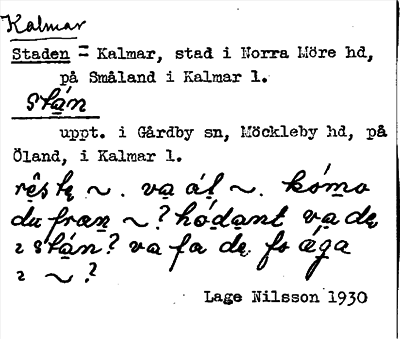 Kalmar
Staden = Kalmar, stad i Norra Möre hd,
på Småland i Kalmar l.
stán
uppt. i Gårdby sn, Möckleby hd, på
Öland, i Kalmar l.
~. va ~. kóma
du fran ~? hódant va de
stán? va fa de fo
~?
Lage Nilsson 1930